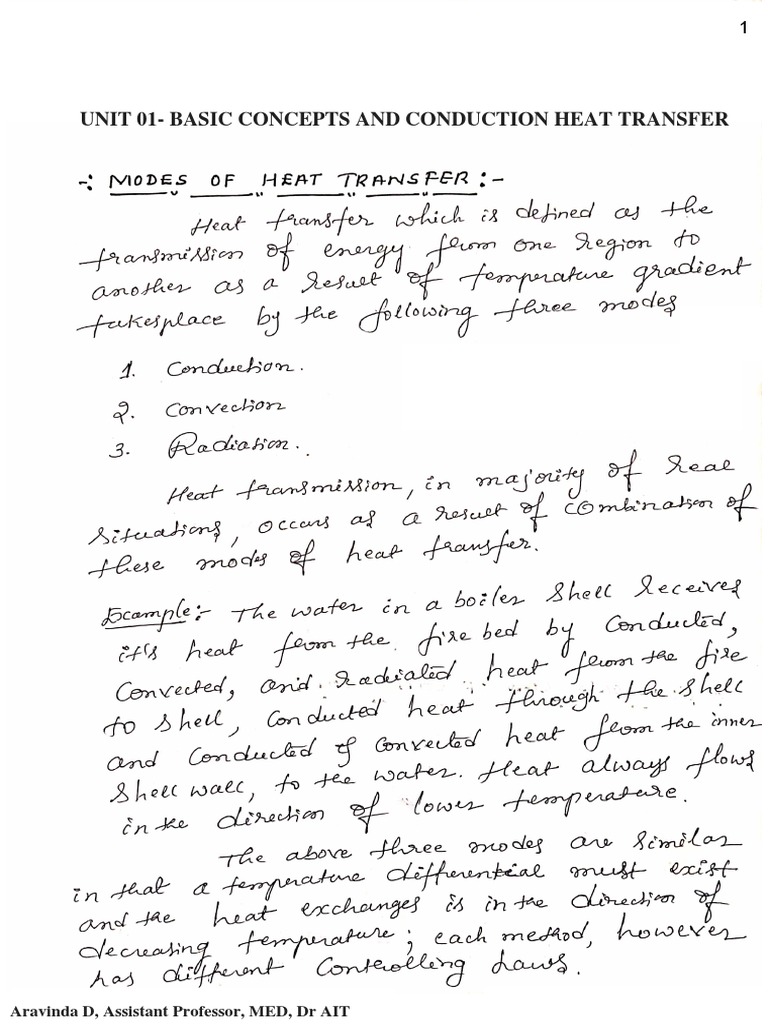 1
UNIT 01- BASIC CONCEPTS AND CONDUCTION HEAT TRANSFER
-: MODES OF HEAT TRANSFER :-
Heat transfer which is defined as the
transmission of energy from one region to
another as a result of temperature gradient
takesplace by the following three modes
1. Conduction.
2. Convection
3. Radiation.
Heat transmission, in majority of real
situations, occurs as a result of combination of
these modes of heat transfer.
Example:- The water in a boiler shell receives
it's heat from the fire bed by conducted,
convected, and radiated heat from the fire
to shell, conducted heat through the shell
and conducted & convected heat from the inner
shell wall, to the water. Heat always flows
in the direction of lower temperature.
The above three modes are similar
in that a temperature differential must exist
and the heat exchanges is in the direction of
decreasing temperature; each method, however
has different controlling laws.
Aravinda D, Assistant Professor, MED, Dr AIT